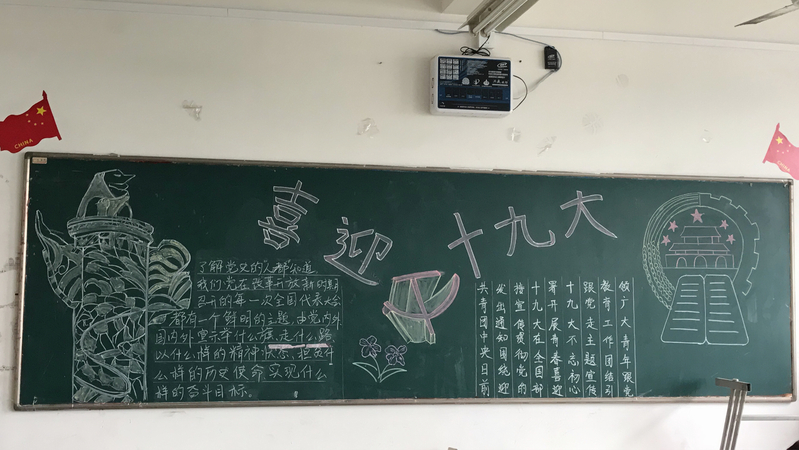 CHINA
喜迎十九大
了解党史的人都知道
我们党在改革开放新时期
召开的每一次全国代表大会
都有一个鲜明的主题,向党内外
国内外宣示举什么旗 走什么路
以什么样的精神状态,担负什
么样的历史使命 实现什么
样的奋斗目标。
共青团中央日前
发出通知围绕迎
接宣传贯彻党的
十九大在全国部
署开展青春喜迎
十九大不忘初心
跟党走主题宣传
教育工作团结引
领广大青年跟党